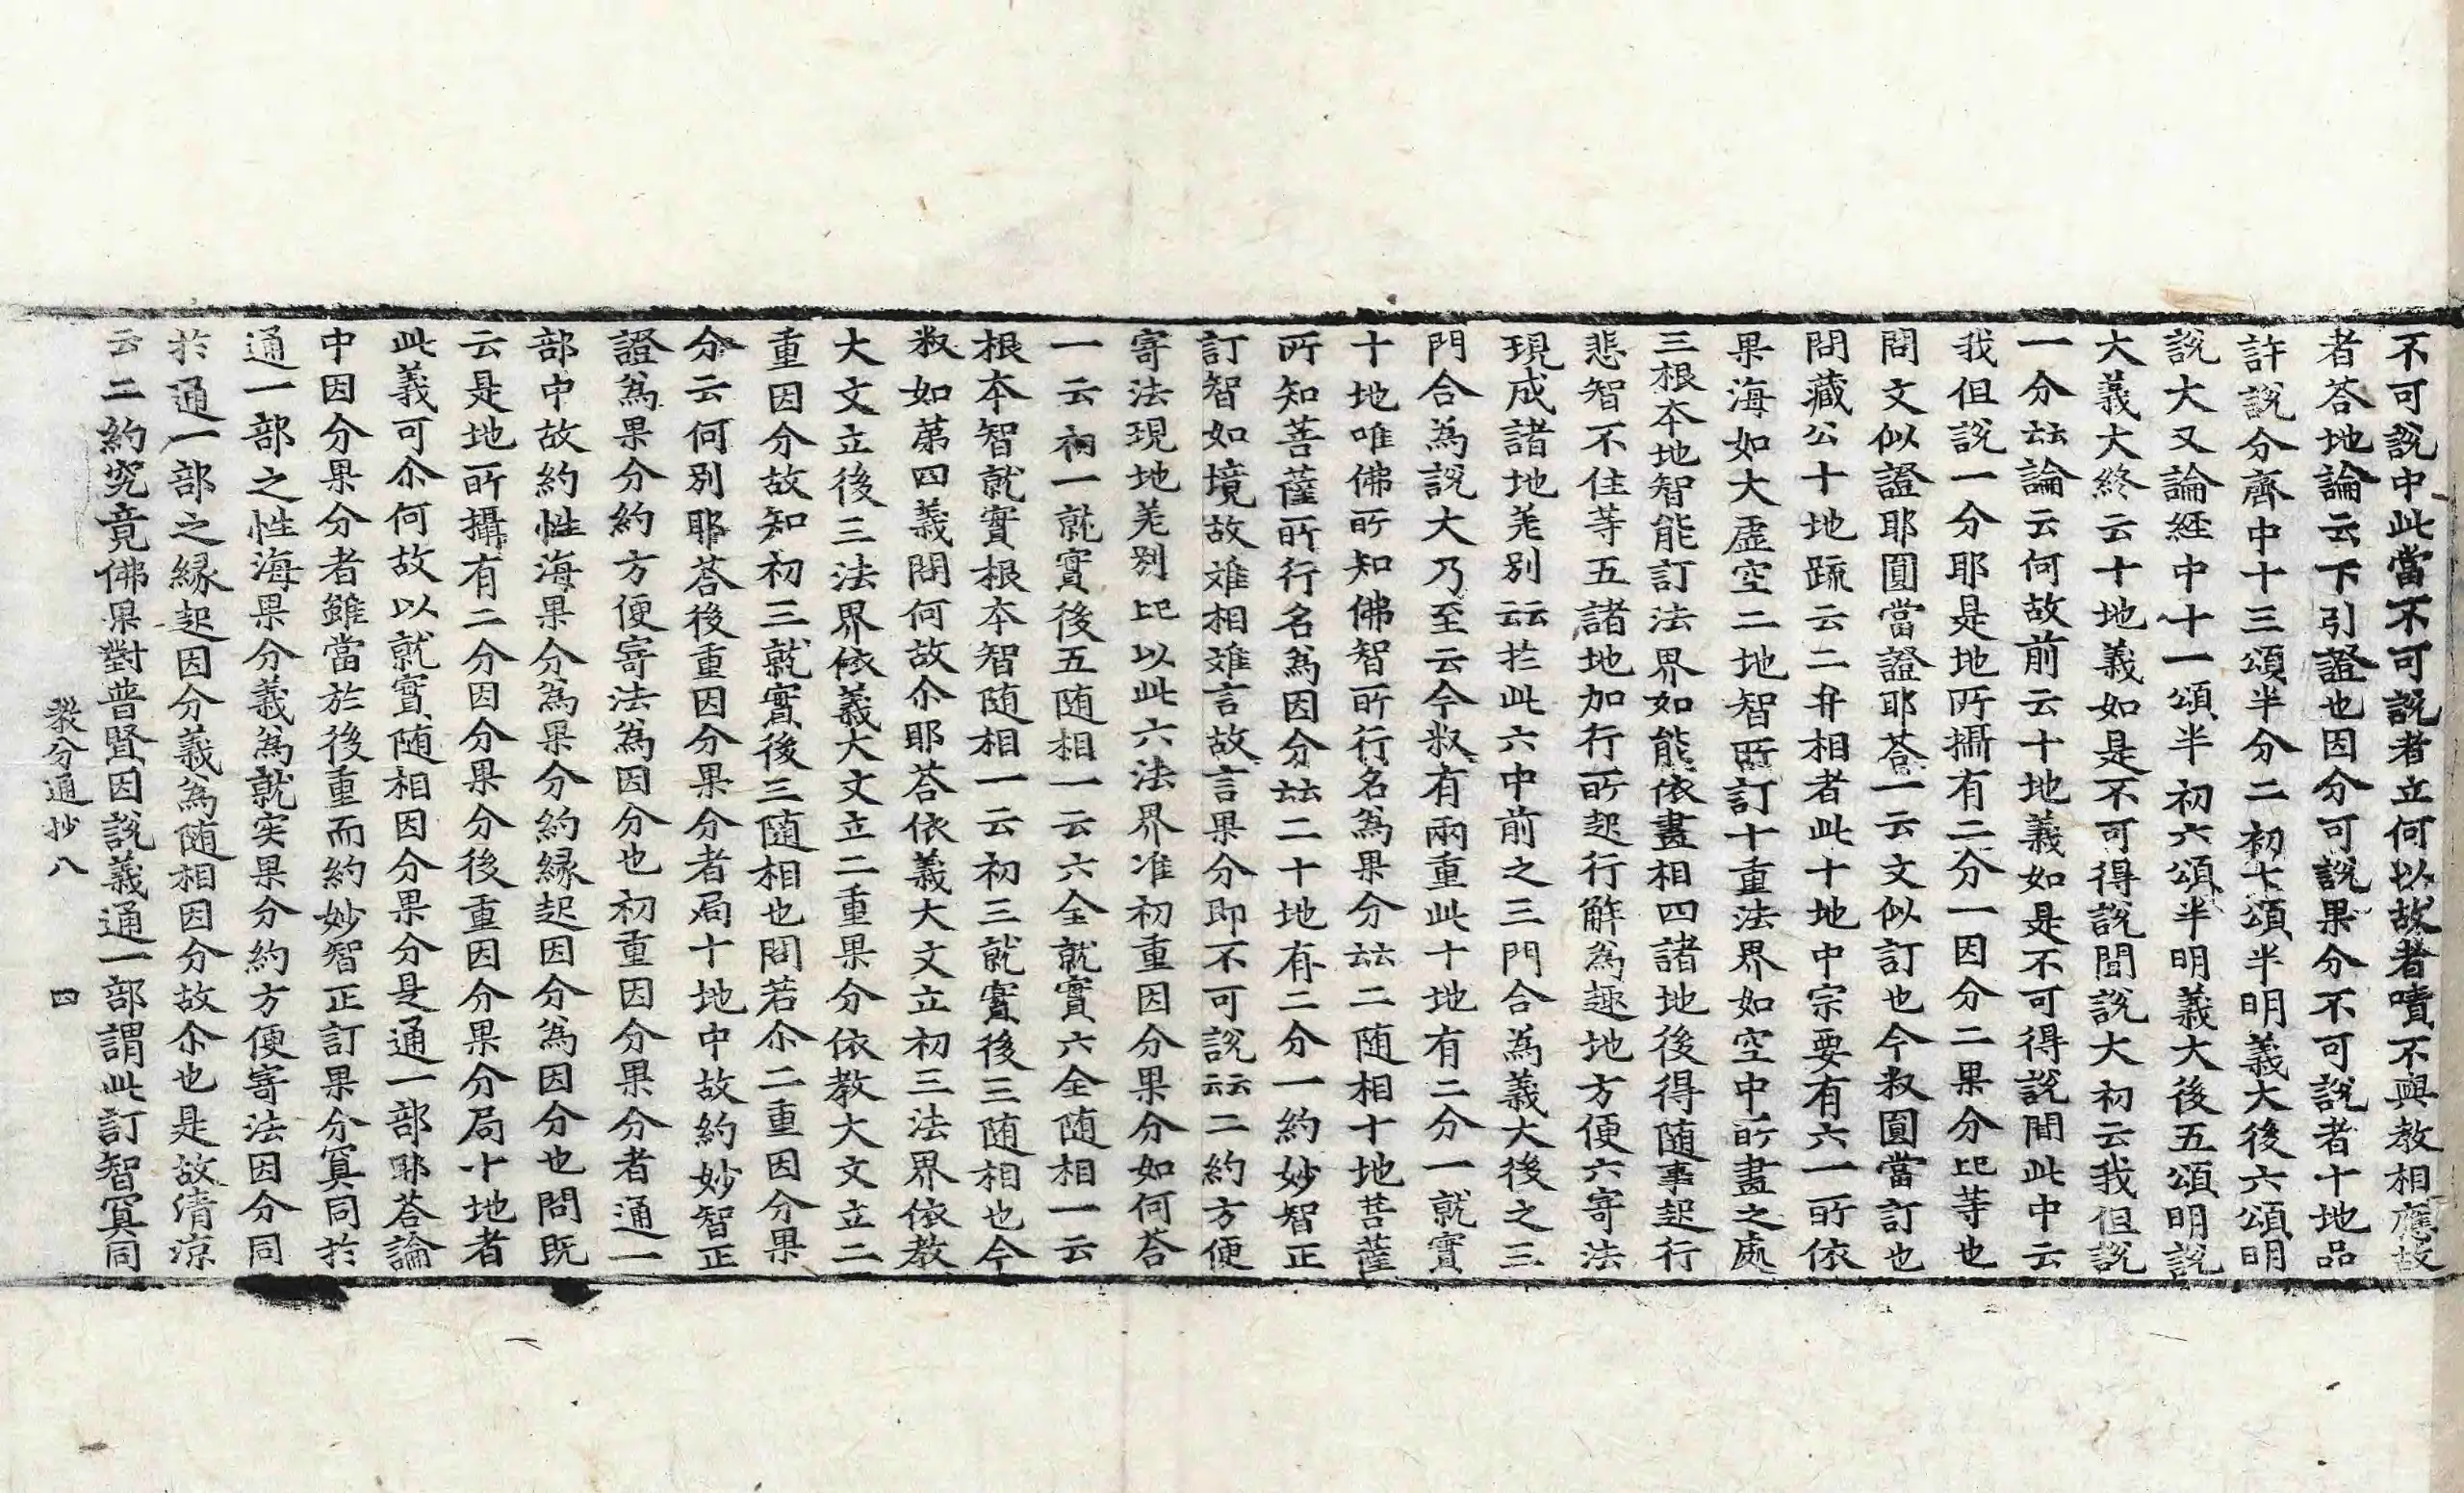 不可說中此當不可說者立何以故者嘖不與教相應故
者答地論云下引證也因分可說果分不可說者十地品
許說分齊中十三頌半分二初七頌半明義大後六頌明
說大又論経中十一頌半初六頌半明義大後五頌明說
大義大終云十地義如是不可得說聞說大初云我但說
一分𪜈論云何故前云十地義如是不可得說聞此中云
我但說一分耶是地所攝有二分一因分二果分𪜈等也
問文似證耶圓當證耶荅一云文似訂也今敎圓當訂也
問藏公十地䟽云二弁相者此十地中宗要有六一所依
果海如大虛空二地智所訂十重法界如空中所畫之處
三根本地智能訂法界如能依畫相四諸地後得随事起行
悲智不住等五諸地加行所起行解為趣地方便六寄法
現成諸地差別云云扵此六中前之三門合為義大後之三
門合為說大乃至云今敎有兩重此十地有二分一就實
十地唯佛所知佛智所行名為果分云云二随相十地菩薩
所知菩薩所行名為因分云云二十地有二分一約妙智正
訂智如境故难相难言故言果分即不可說云云二約方便
寄法現地差別以此六法界准初重因分果分如何荅
一云初一就實後五随相一云六全就實六全随相一云
根本智就實根本智随相一云初三就實後三随相也今
敎如苐四義問何故尒耶荅依義大文立初三法界依教
大文立後三法界依義大文立二重果分依教大文立二
重因分故知初三就實後三随相也問若尒二重因分果
分云何別耶荅後重因分果分者局十地中故約妙智正
證為果分約方便寄法為因分也初重因分果分者通一
部中故約性海果分為果分約縁起因分為因分也問既
云是地所攝有二分因分果分後重因分果分局十地者
此義可尒何故以就實随相因分果分是通一部耶荅論
中因分果分者雖當於後重而約妙智正訂果分冥同於
通一部之性海果分義為就实果分約方便寄法因分同
扵通一部之縁起因分義為随相因分故尒也是故清凉
云二約究竟佛果對普賢因說義通一部謂此訂智冥同
敎分通抄八　四